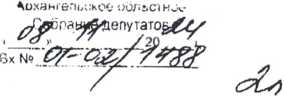 Архангельское областное
Собрание депутатов
"08" 11 2024
Вх № 01-02/1488
2л